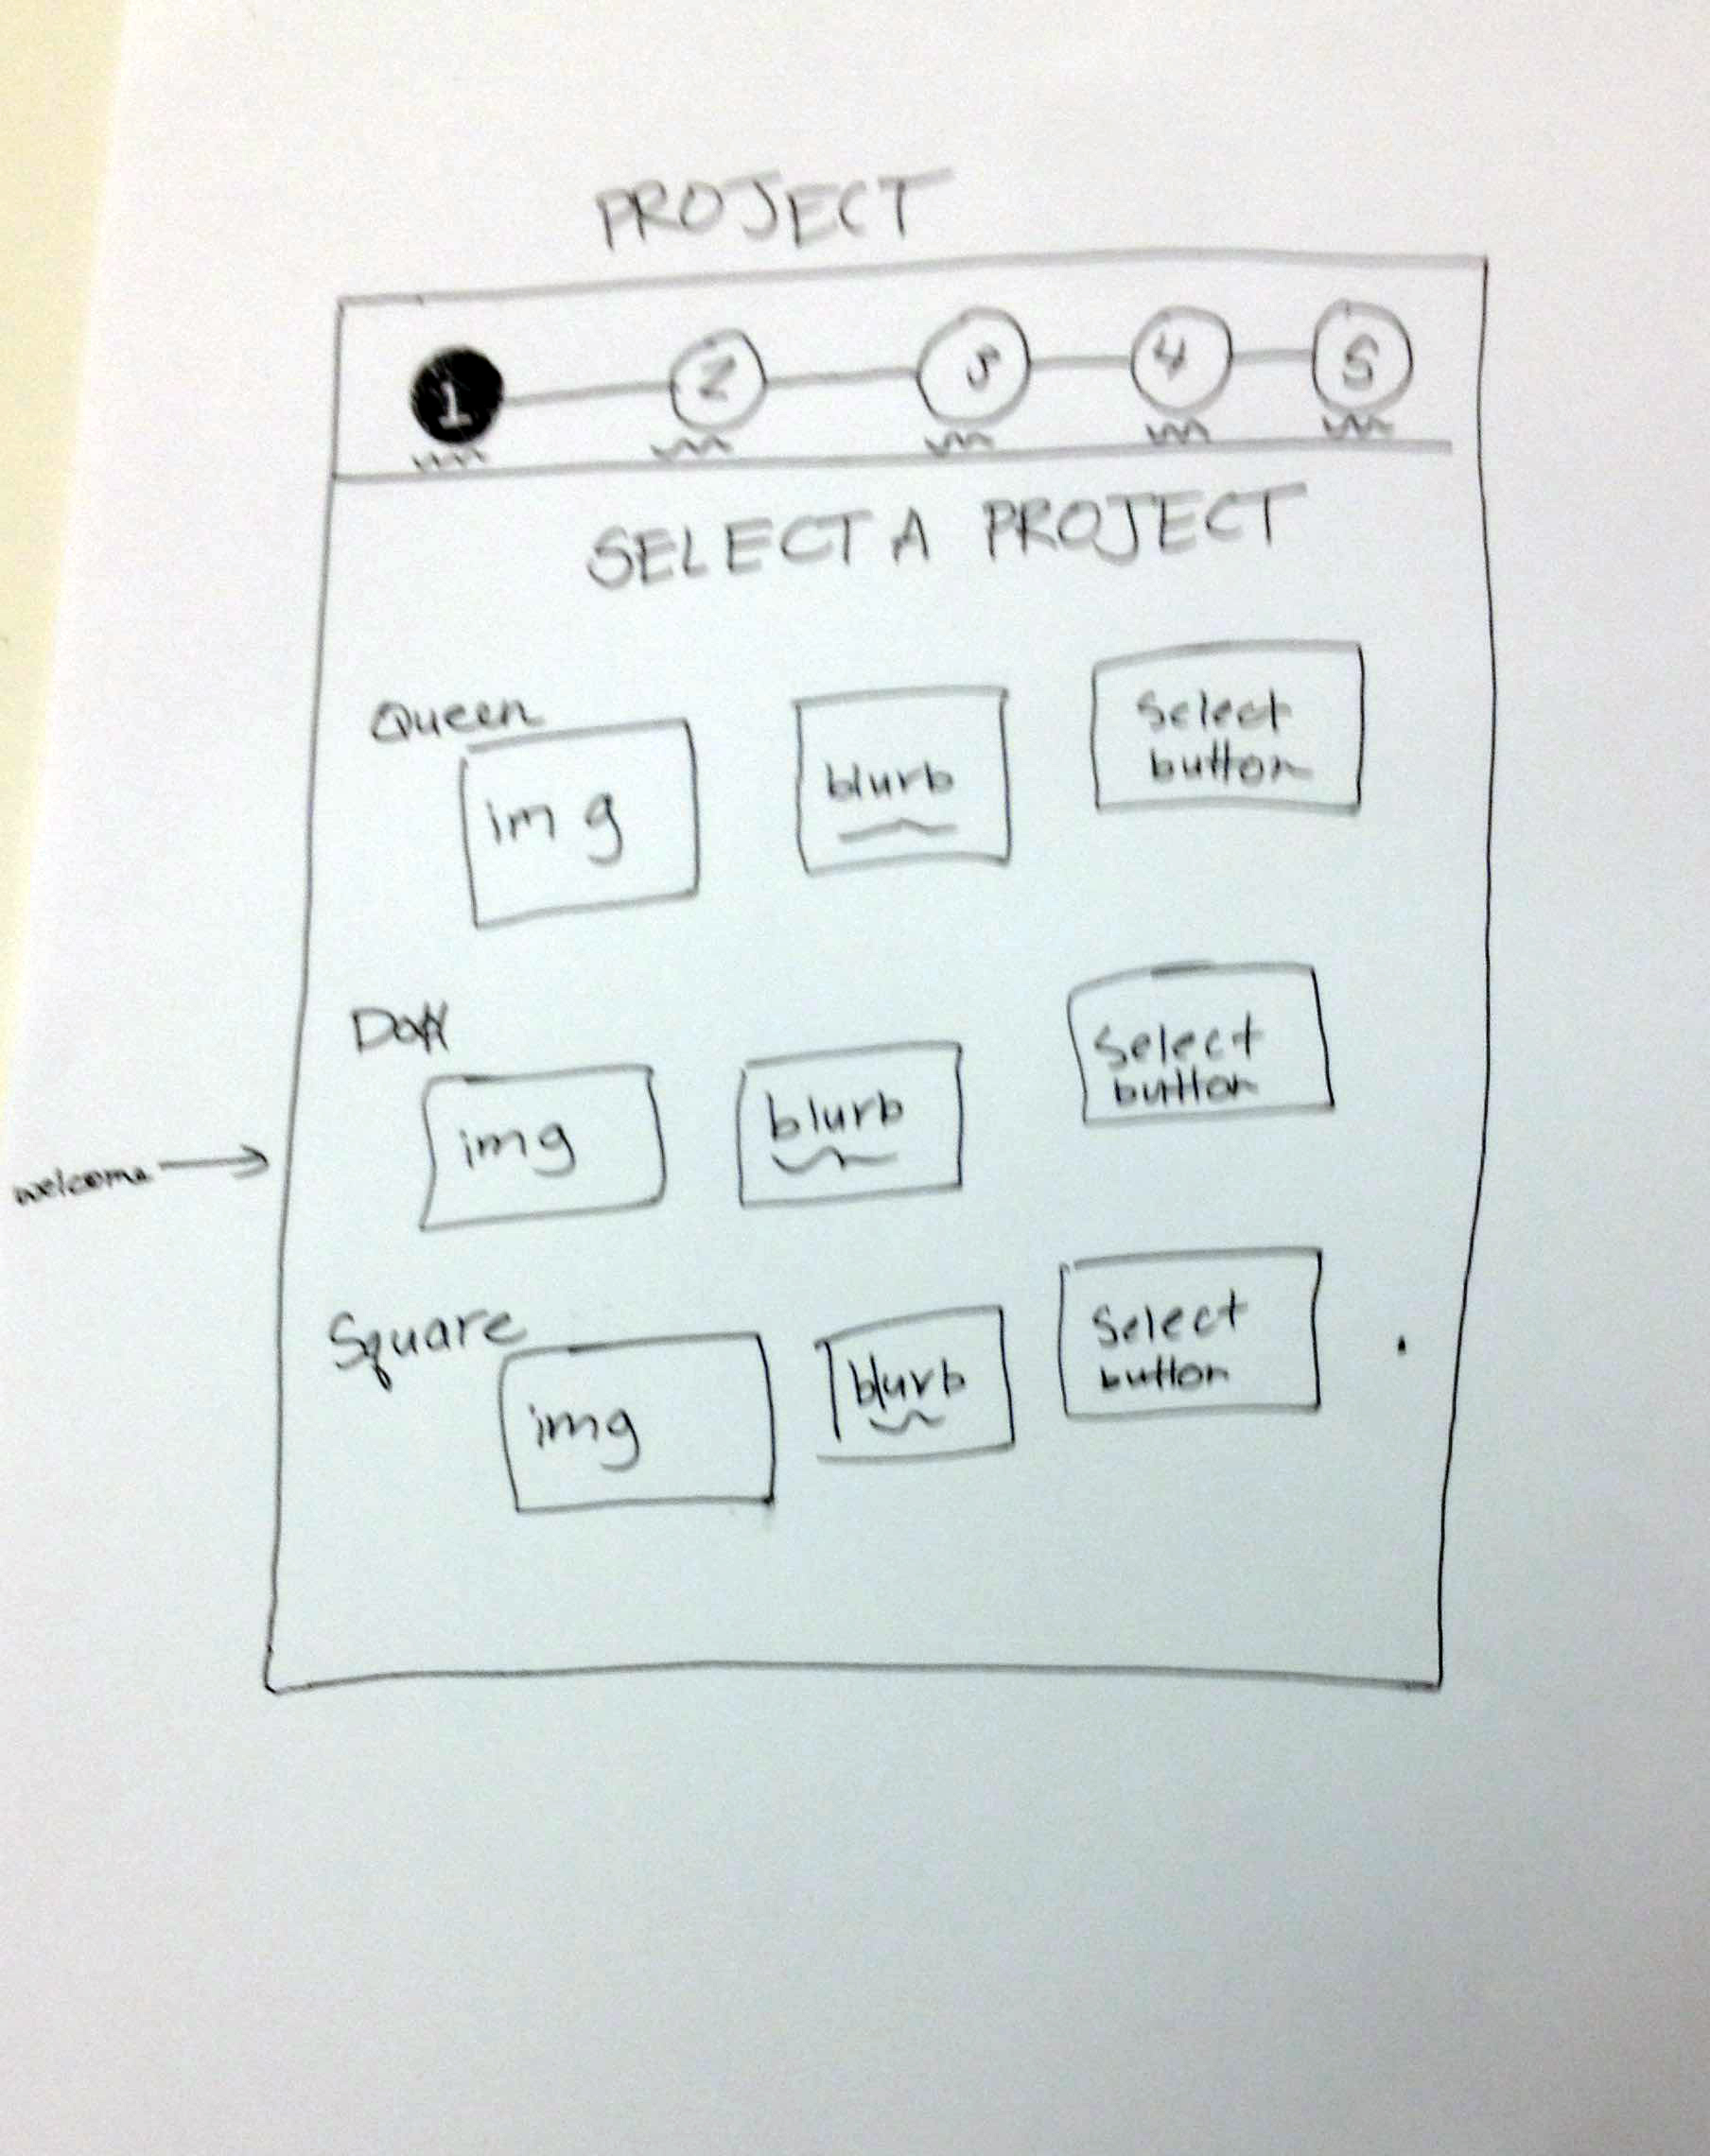 PROJECT
1 2 3 4 5
SELECT A PROJECT
Queen
img
blurb
Select
button
img
blurb
Select
button
welcome
Square
img
blurb
Select
button